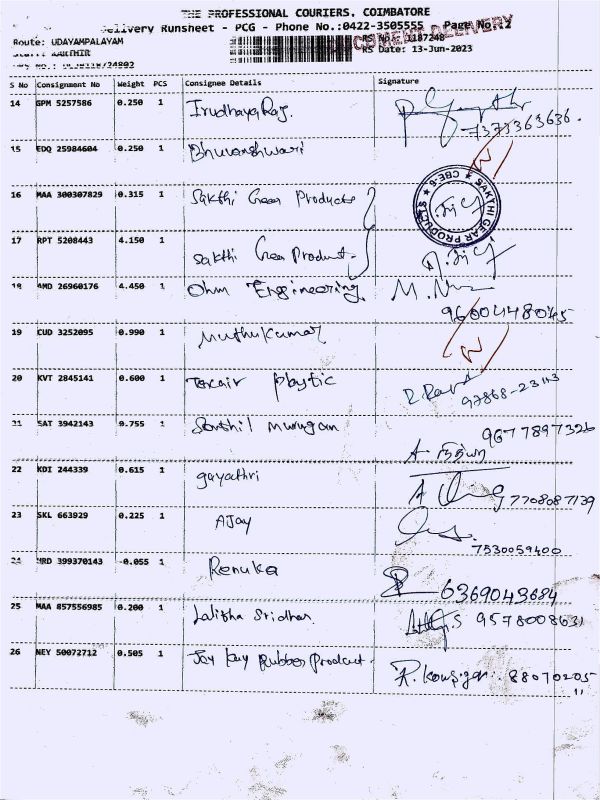 THE PROFESSIONAL COURIERS, COIMBATORE
Delivery Runsheet - PCG - Phone No.:0422-3505555 Page No.:2
DOCUMENT DELIVERY
Route: UDAYAMPALAYAM RS No.: 1187248
Staff: KARTHIK RS Date: 13-Jun-2023
S No Consignment No Weight PCS Consignee Details Signature
14 GPM 5257586 0.250 1 Irudhaya Raj.
7373363636.
15 EDQ 25984604 0.250 1 Bhuvaneshwari
16 MAA 300307829 0.315 1 Sakthi Gear Products
SAKTHI GEAR PRODUCTS CBE-6
17 RPT 5208443 4.150 1 Sakthi Gear Product
18 AMD 26960176 4.450 1 Ohm Engineering
9600448045
19 CUD 3252095 0.990 1 Muthukumar
20 KVT 2845141 0.600 1 plastic
21 SAT 3942143 0.755 1 Senthil murugan 9677897326
A நித்யா
22 KDI 244339 0.615 1 gayathri
7708087139
23 SKL 663929 0.225 1 AJay
7530059400
24 HRD 399370143 0.055 1 Renuka
6369043684
25 MAA 857556985 0.200 1 Lalitha Sridhar 9578008631
26 NEY 50072712 0.505 1 Jay kay Rubber Product. 88070205
11